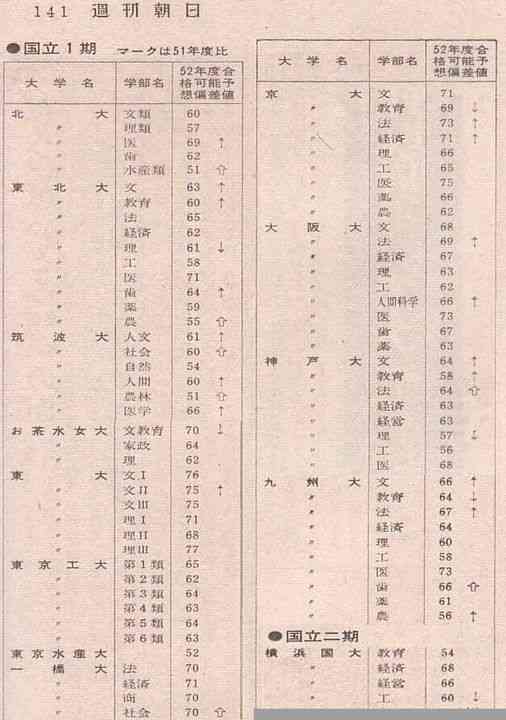 141 週刊朝日
●国立1期 マークは51年度比
大学名 学部名 52年度合格可能予想偏差値
北大 文類 60
〃 理類 57
〃 医 69 ↑
〃 歯 62
〃 水産類 51 ⇧
東北大 文 63 ↑
〃 教育 60 ↑
〃 法 65
〃 経済 62
〃 理 61 ↓
〃 工 58
〃 医 71
〃 歯 64 ↑
〃 薬 59
〃 農 55 ⇧
筑波大 人文 61 ↑
〃 社会 60 ⇧
〃 自然 54
〃 人間 60 ↑
〃 農林 51 ⇧
〃 医学 66 ↑
お茶水女大 文教育 70 ↓
〃 家政 64
〃 理 62
東大 文I 76
〃 文II 75 ↑
〃 文III 75
〃 理I 71
〃 理II 68
〃 理III 77
東京工大 第1類 65
〃 第2類 62
〃 第3類 64
〃 第4類 63
〃 第5類 64
〃 第6類 63
東京水産大 52
一橋大 法 70
〃 経済 71
〃 商 70
〃 社会 70 ⇧
大学名 学部名 52年度合格可能予想偏差値
京大 文 71
〃 教育 69 ↓
〃 法 73 ↑
〃 経済 71 ↑
〃 理 66
〃 工 65
〃 医 75
〃 薬 66
〃 農 62
大阪大 文 68
〃 法 69 ↑
〃 経済 67
〃 理 63
〃 工 62
〃 人間科学 66 ↑
〃 医 73
〃 歯 67
〃 薬 63
神戸大 文 64 ↑
〃 教育 58 ↑
〃 法 64 ⇧
〃 経済 63
〃 経営 63
〃 理 57 ↓
〃 工 56
〃 医 68
九州大 文 66 ↑
〃 教育 64 ↓
〃 法 67 ↑
〃 経済 64
〃 理 60
〃 工 58
〃 医 73
〃 歯 66 ⇧
〃 薬 61
〃 農 56 ↑
●国立二期
横浜国大 教育 54
〃 経済 68
〃 経営 66
〃 工 60 ↓